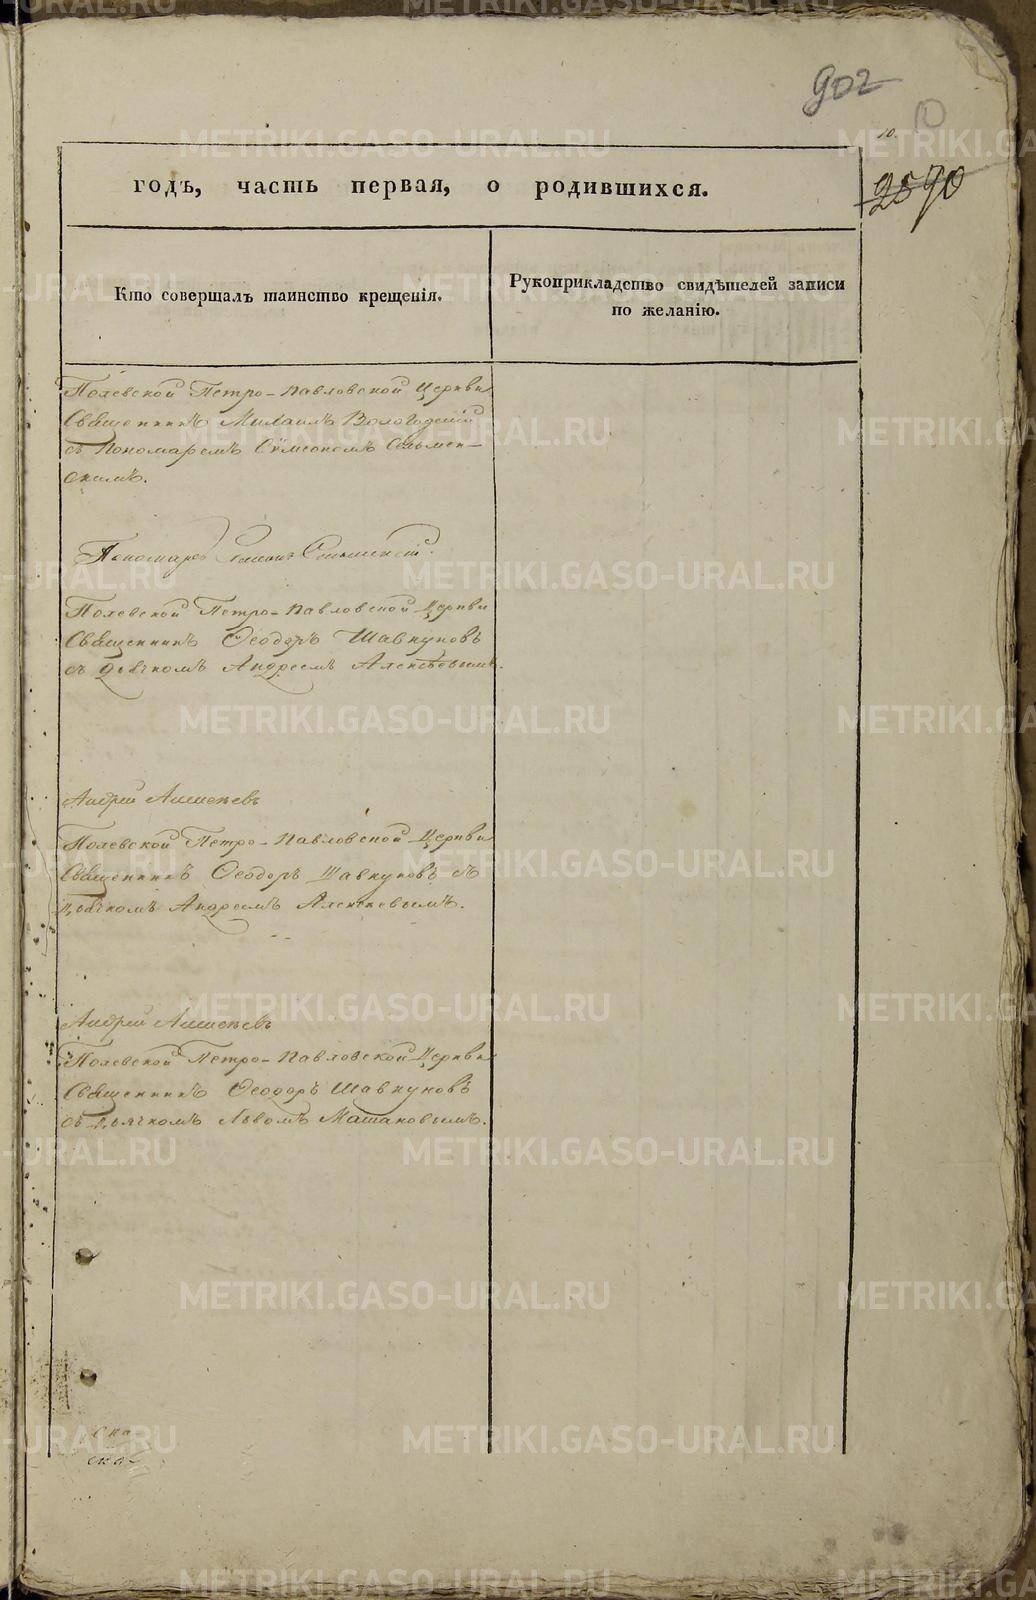 902
10.
10
2590
годъ, часть первая, о родившихся.
Кто совершалъ таинство крещенія.
Рукоприкладство свидѣтелей записи
по желанію.
Полевской Петро-Павловской Церкви
Священникъ Михаилъ Вологодскій
съ Пономаремъ Сѵмеономъ
скимъ.
Пономарь
Полевской Петро-Павловской Церкви
Священникъ Ѳеодоръ Шавкуновъ
съ Дьячкомъ Андреемъ Алексѣевымъ.
Андрей Алексѣевъ
Полевской Петро-Павловской Церкви
Священникъ Ѳеодоръ Шавкуновъ съ
Дьячкомъ Андреемъ Алексѣевымъ.
Андрей Алексѣевъ
Полевской Петро-Павловской Церкви
Священникъ Ѳеодоръ Шавкуновъ
съ Дьячкомъ Львомъ Машановымъ.
METRIKI.GASO-URAL.RU